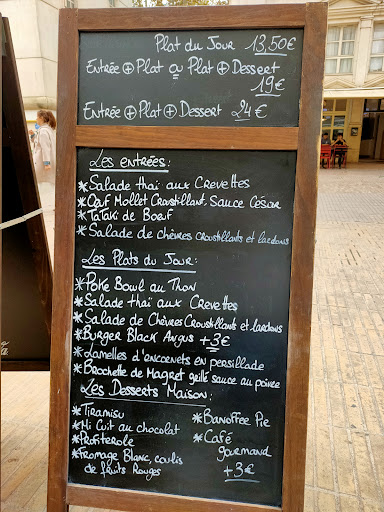 Plat du Jour 13,50€
Entrée + Plat ou Plat + Dessert
19€
Entrée + Plat + Dessert 24€
Les entrées:
* Salade thaï aux Crevettes
* Œuf Mollet Croustillant, Sauce César
* Tataki de Bœuf
* Salade de chèvres croustillants et lardons
Les Plats du Jour:
* Poké Bowl au Thon
* Salade thaï aux Crevettes
* Salade de Chèvres Croustillants et lardons
* Burger Black Angus +3€
* Lamelles d'encornets en persillade
* Brochette de Magret grillé sauce au poivre
Les Desserts Maison:
* Tiramisu
* Mi Cuit au chocolat
* Profiterole
* Fromage Blanc, coulis
de fruits Rouges
* Banoffee Pie
* Café
gourmand
+3€